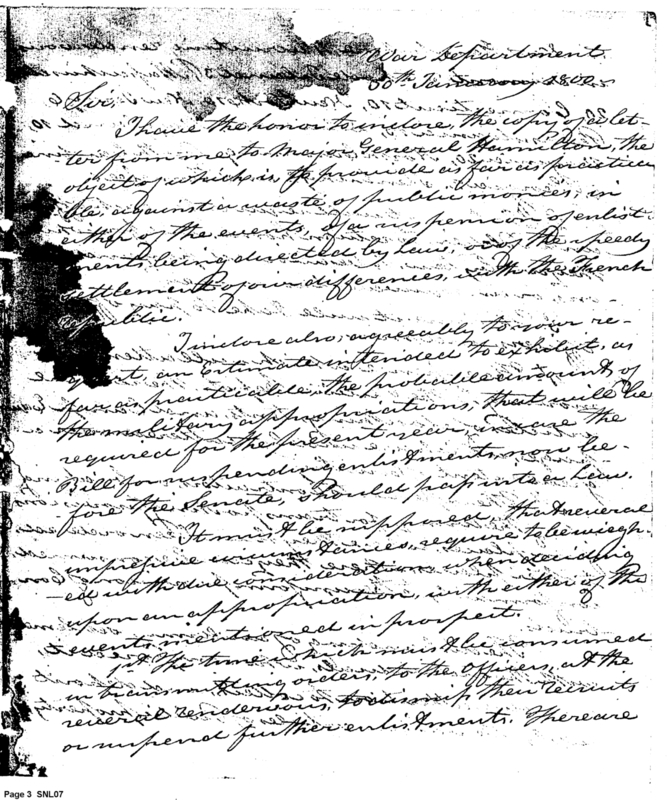 War Department
30th January 1800.
Sir,
I have the honor to inclose, the copy of a let-
ter from me to Major General Hamilton, the
object of which, is to provide as far as practica
ble, against a waste of public monies, in
either of the events, of a suspension of enlist
ments, being directed by Law, or of the speedy
settlement of our differences, with the French
Republic.
I inclose also, agreeably to your re-
quest, an estimate intended to exhibit, as
far as practicable, the probable amount of
the military appropriations, that will be
required for the present year, in case the
Bill for suspending enlistments now be-
fore the Senate, should pass into a Law.
It must be supposed, that several
impressive circumstances, require to be weigh-
-ed with due consideration, when deciding
upon an appropriation, with either of the
events mentioned in prospect.
1st The time which must be consumed
in transmitting orders, to the Officers, at the
several rendezvous, to dismiss their recruits
or suspend further enlistments. There are
Page 3 SNL07